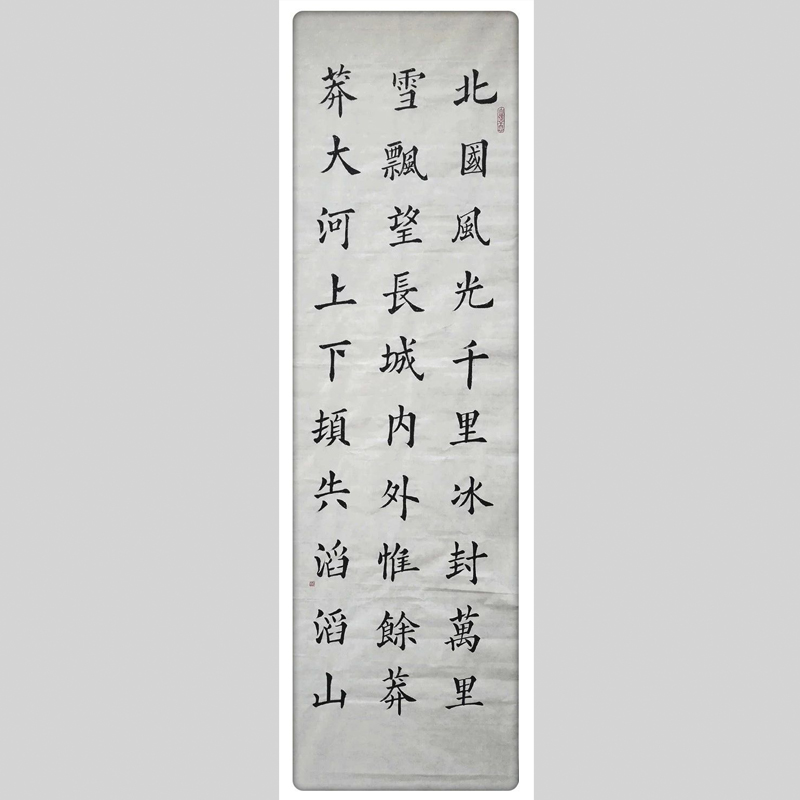 北國風光千里冰封萬里
雪飄望長城内外惟餘莽
莽大河上下頓失滔滔山